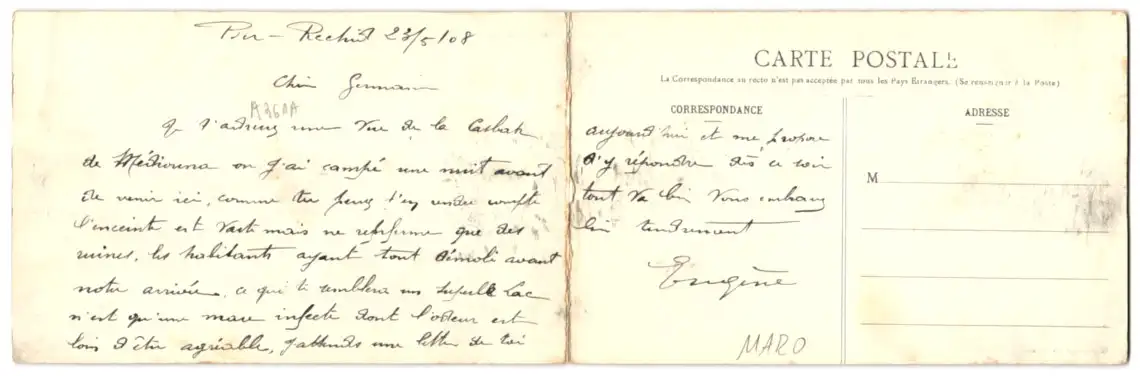 Ber-Rechid 23/5/08
Cher Germain
A260A
Je t'adresse une Vue de la Casbah
de Médiouna ou j'ai campé une nuit avant
de venir ici, comme tu peux t'en rendre compte
l'enceinte est Vaste mais ne renferme que des
ruines, les habitants ayant tout démoli avant
notre arrivée, ce qui te semblera un superbe Lac
n'est qu'une mare infecte dont l'odeur est
loin d'être agréable, j'attends une lettre de toi
CARTE POSTALE
La Correspondance au recto n'est pas acceptée par tous les Pays Etrangers. (Se renseigner à la Poste)
CORRESPONDANCE
aujourd'hui et me propose
d'y répondre dès ce soir
tout va bien Vous embrasse
bien tendrement
Eugène
MARO
ADRESSE
M